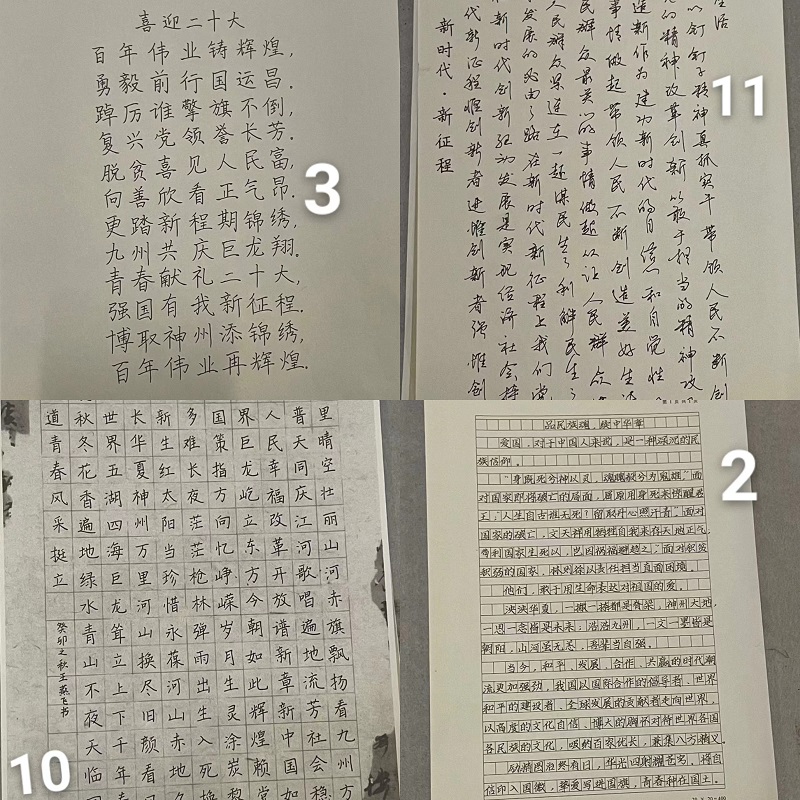 喜迎二十大
百年伟业铸辉煌,
勇毅前行国运昌.
踔厉谁擎旗不倒,
复兴党领誉长芳.
脱贫喜见人民富,
向善欣看正气昂.
更踏新程期锦绣,
九州共庆巨龙翔.
青春献礼二十大,
强国有我新征程.
博取神州添锦绣,
百年伟业再辉煌.
3
生活以钉钉子精神真抓实干带领人民不断创
的精神改革创新以敢于担当的精神攻
造新作为建功新时代的自信和自觉性
事情做起带领人民不断创造美好生活
民群众最关心的事情做起以让人民群众
人民群众紧连在一起谋民生之利解民生之
发展的必由之路在新时代新征程上我们党
新时代创新驱动发展是实现经济社会持
代新征程惟创新者进惟创新者强惟创
新时代·新征程
11
里晴空壮丽山河赤旗飘扬看九州方
普天同庆江河歌唱遍地流芳社会稳
人民幸福改革开放谱新章中国如
界巨龙屹立东方今朝如此辉煌赖党
国策指方向忆峥嵘岁月生灵涂炭黎
多难长夜茫茫枪林弹雨出生入死换
新生红太阳当珍惜永葆河山赤地
长华夏神州万里河山换尽旧颜看
世界五湖四海巨龙耸立上下千年
秋冬花香遍地绿水青山不夜天临
道青春风采挺立
癸卯之秋王燕飞书
10
品民族魂,续中华章
爱国,对于中国人来说,是一种深沉的民
族信仰。
"身既死兮神以灵,魂魄毅兮为鬼雄"面
对国家即将破亡的局面,屈原用身死来惊醒君
王;人生自古谁无死?留取丹心照汗青"面对
国家的破亡,文天祥用牺牲自我来存天地正气,
苟利国家生死以,岂因祸福避趋之"面对积贫
积弱的国家,林则徐以责任担当直面困境。
他们,敢于用生命表达对祖国的爱。
泱泱华夏,一撇一捺都是脊梁,神州大地,
一思一念皆是未来;浩浩九州,一文一墨皆是
朝阳,山河虽无恙,吾辈当自强。
当今,和平、发展、合作、共赢的时代潮
流更加强劲,我国以国际合作的倡导者、世界
和平的建设者、全球发展的贡献者走向世界,
以高度的文化自信、博大的胸怀对待世界各国
各民族的文化,吸纳百家优长,兼集八方精义
励精图治终有日,华光四射耀苍穹,将自
信印入国徽,挚爱写进国旗,青春种在国土。
2